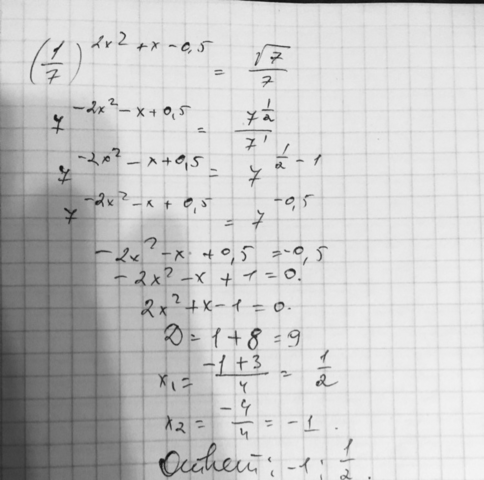 (1/7)^(2x² + x − 0,5) = √7/7
7^(−2x² − x + 0,5) = 7^(1/2)/7¹
7^(−2x² − x + 0,5) = 7^(1/2 − 1)
7^(−2x² − x + 0,5) = 7^(−0,5)
−2x² − x + 0,5 = −0,5
−2x² − x + 1 = 0.
2x² + x − 1 = 0.
D = 1 + 8 = 9
x₁ = (−1 + 3)/4 = 1/2
x₂ = −4/4 = −1.
Ответ: −1; 1/2.